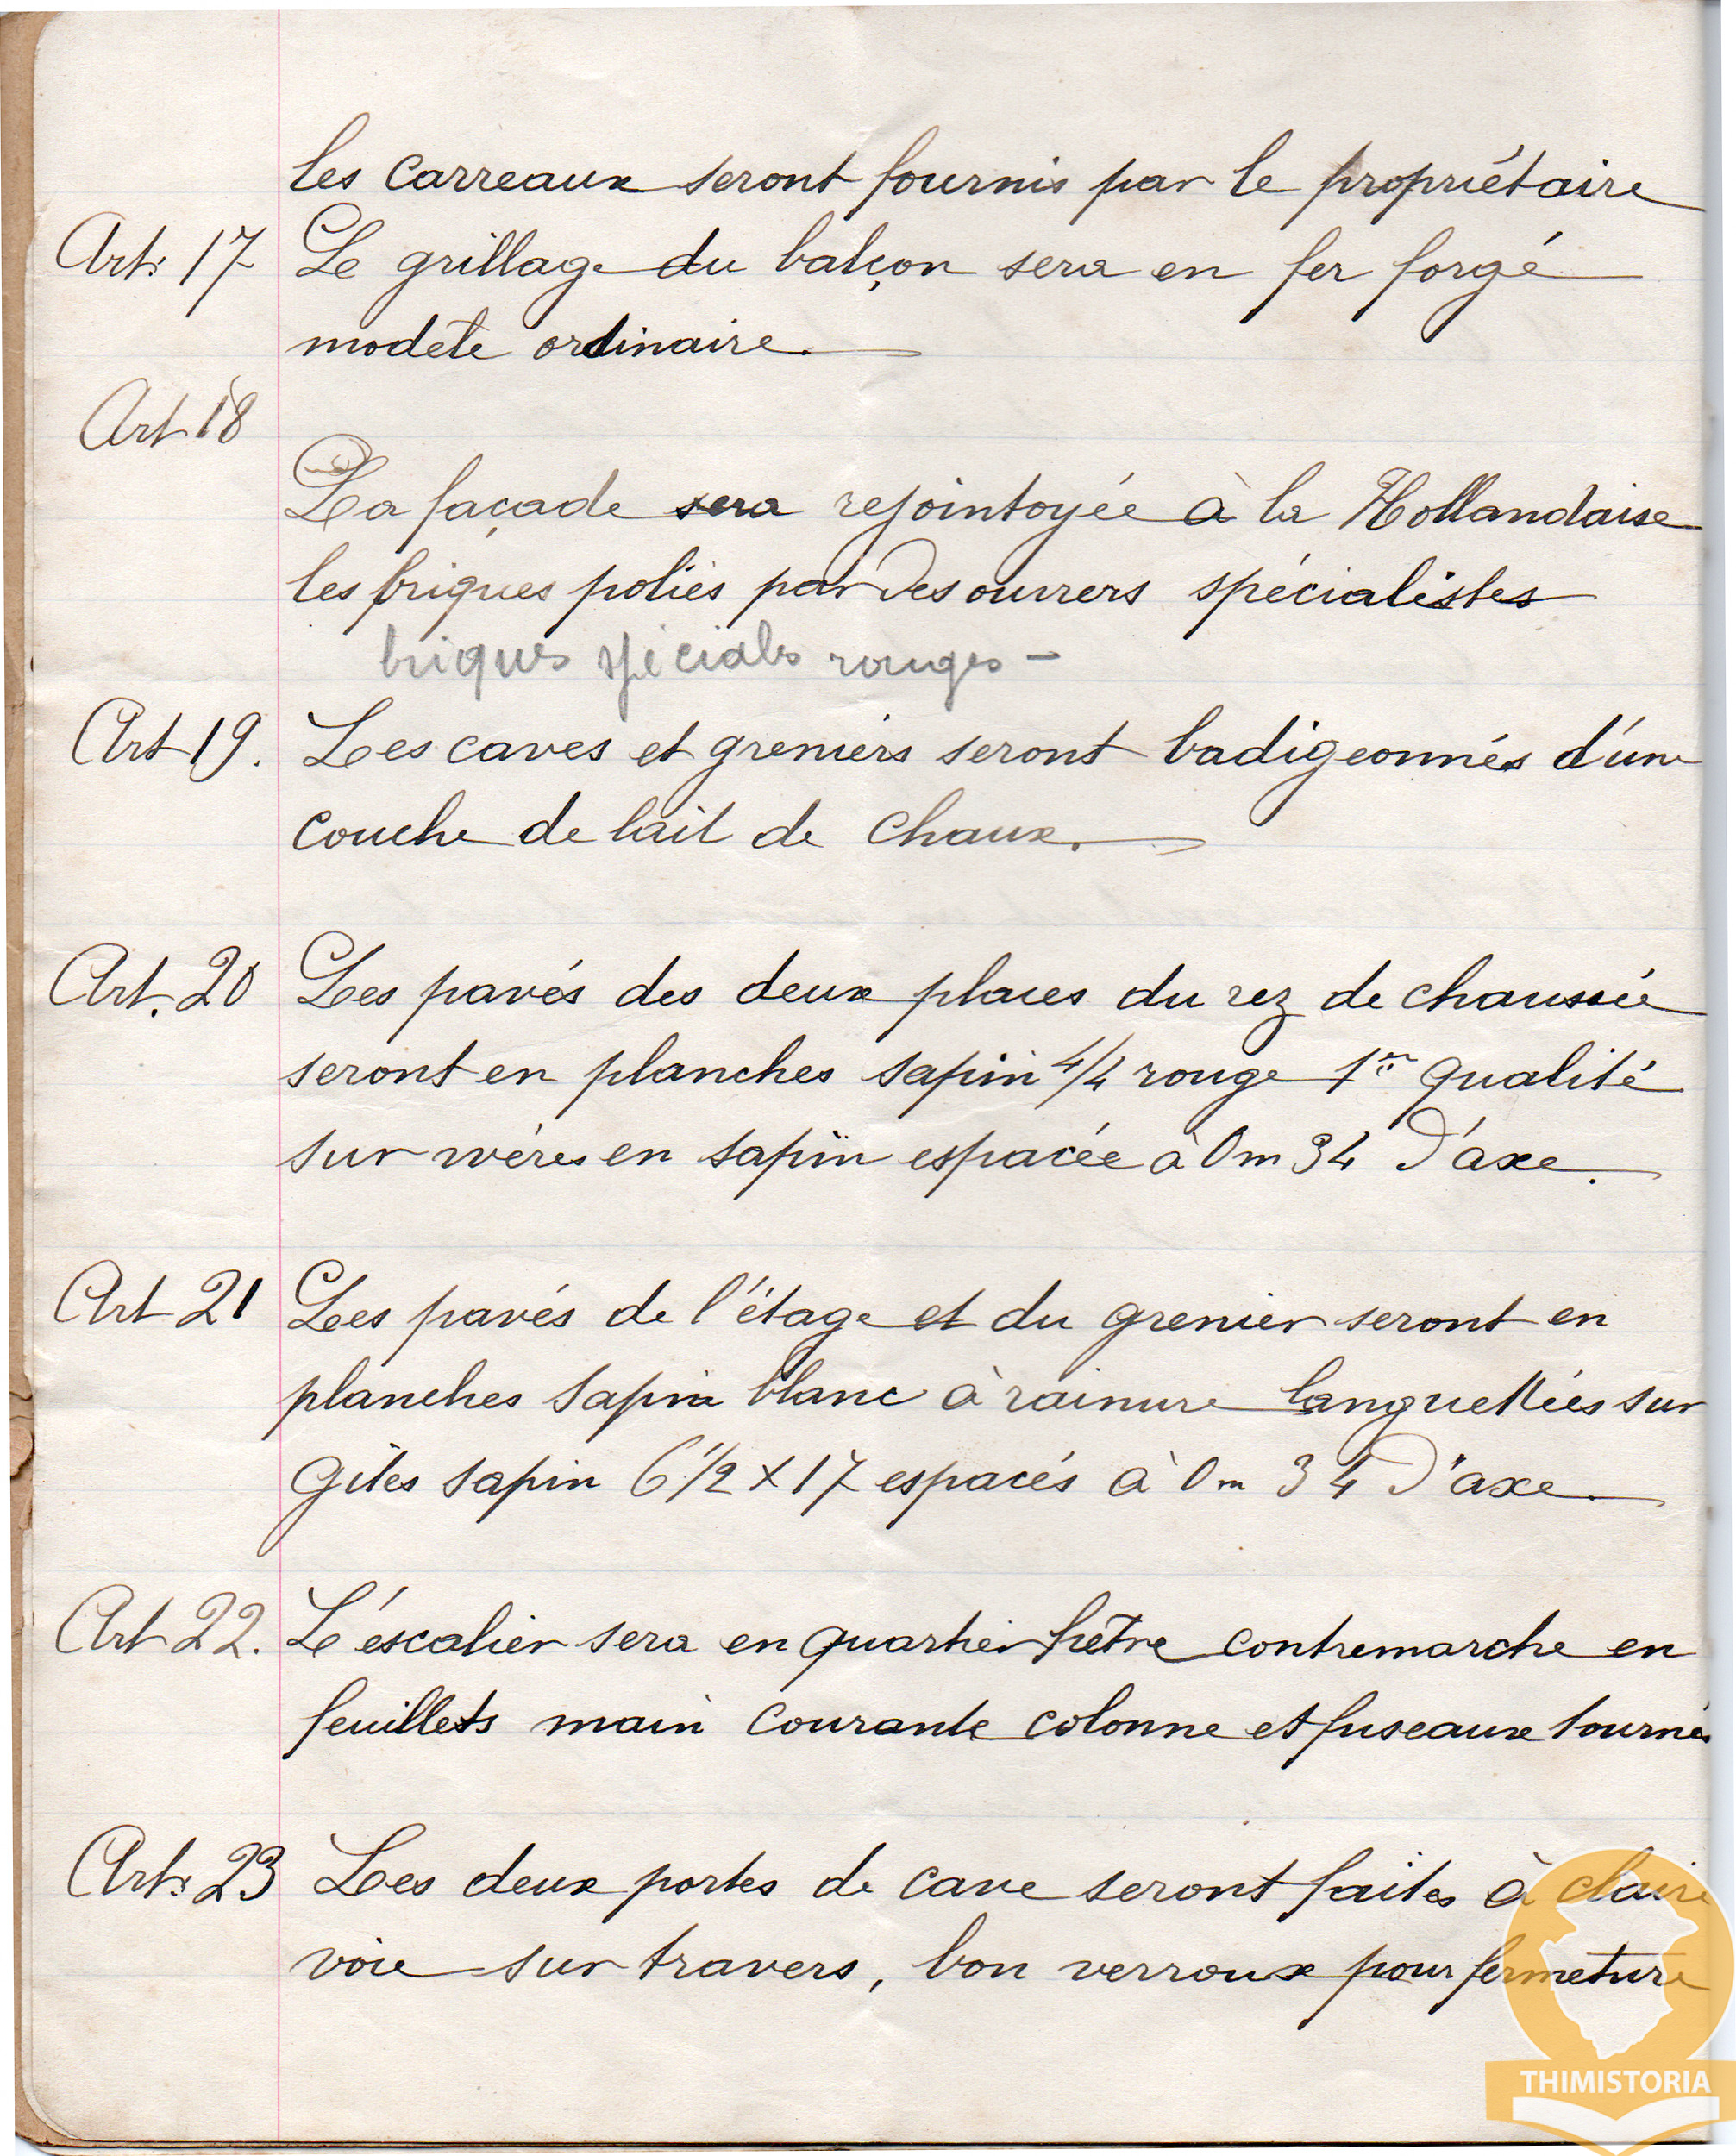 les carreaux seront fournis par le propriétaire
Art: 17 Le grillage du balçon sera en fer forgé
modele ordinaire.
Art 18
La façade sera rejointoyée à la Hollandaise
les briques poliés par des ouvrers spécialistes
briques spéciales rouges -
Art 19. Les caves et greniers seront badigeonnés d'une
couche de lait de chaux.
Art. 20 Les pavés des deux places du rez de chaussée
seront en planches sapin 4/4 rouge 1re qualité
sur wères en sapin espacée à 0m 34 d'axe.
Art 21 Les pavés de l'étage et du grenier seront en
planches sapin blanc à rainure languettées sur
Gites sapin 6 1/2 x 17 espacés à 0m 34 d'axe.
Art 22. L'éscalier sera en quartier hêtre contremarche en
feuillets main courante colonne et fuseaux tournés
Art: 23 Les deux portes de cave seront faites à claire
voie sur travers, bon verroux pour fermeture
THIMISTORIA